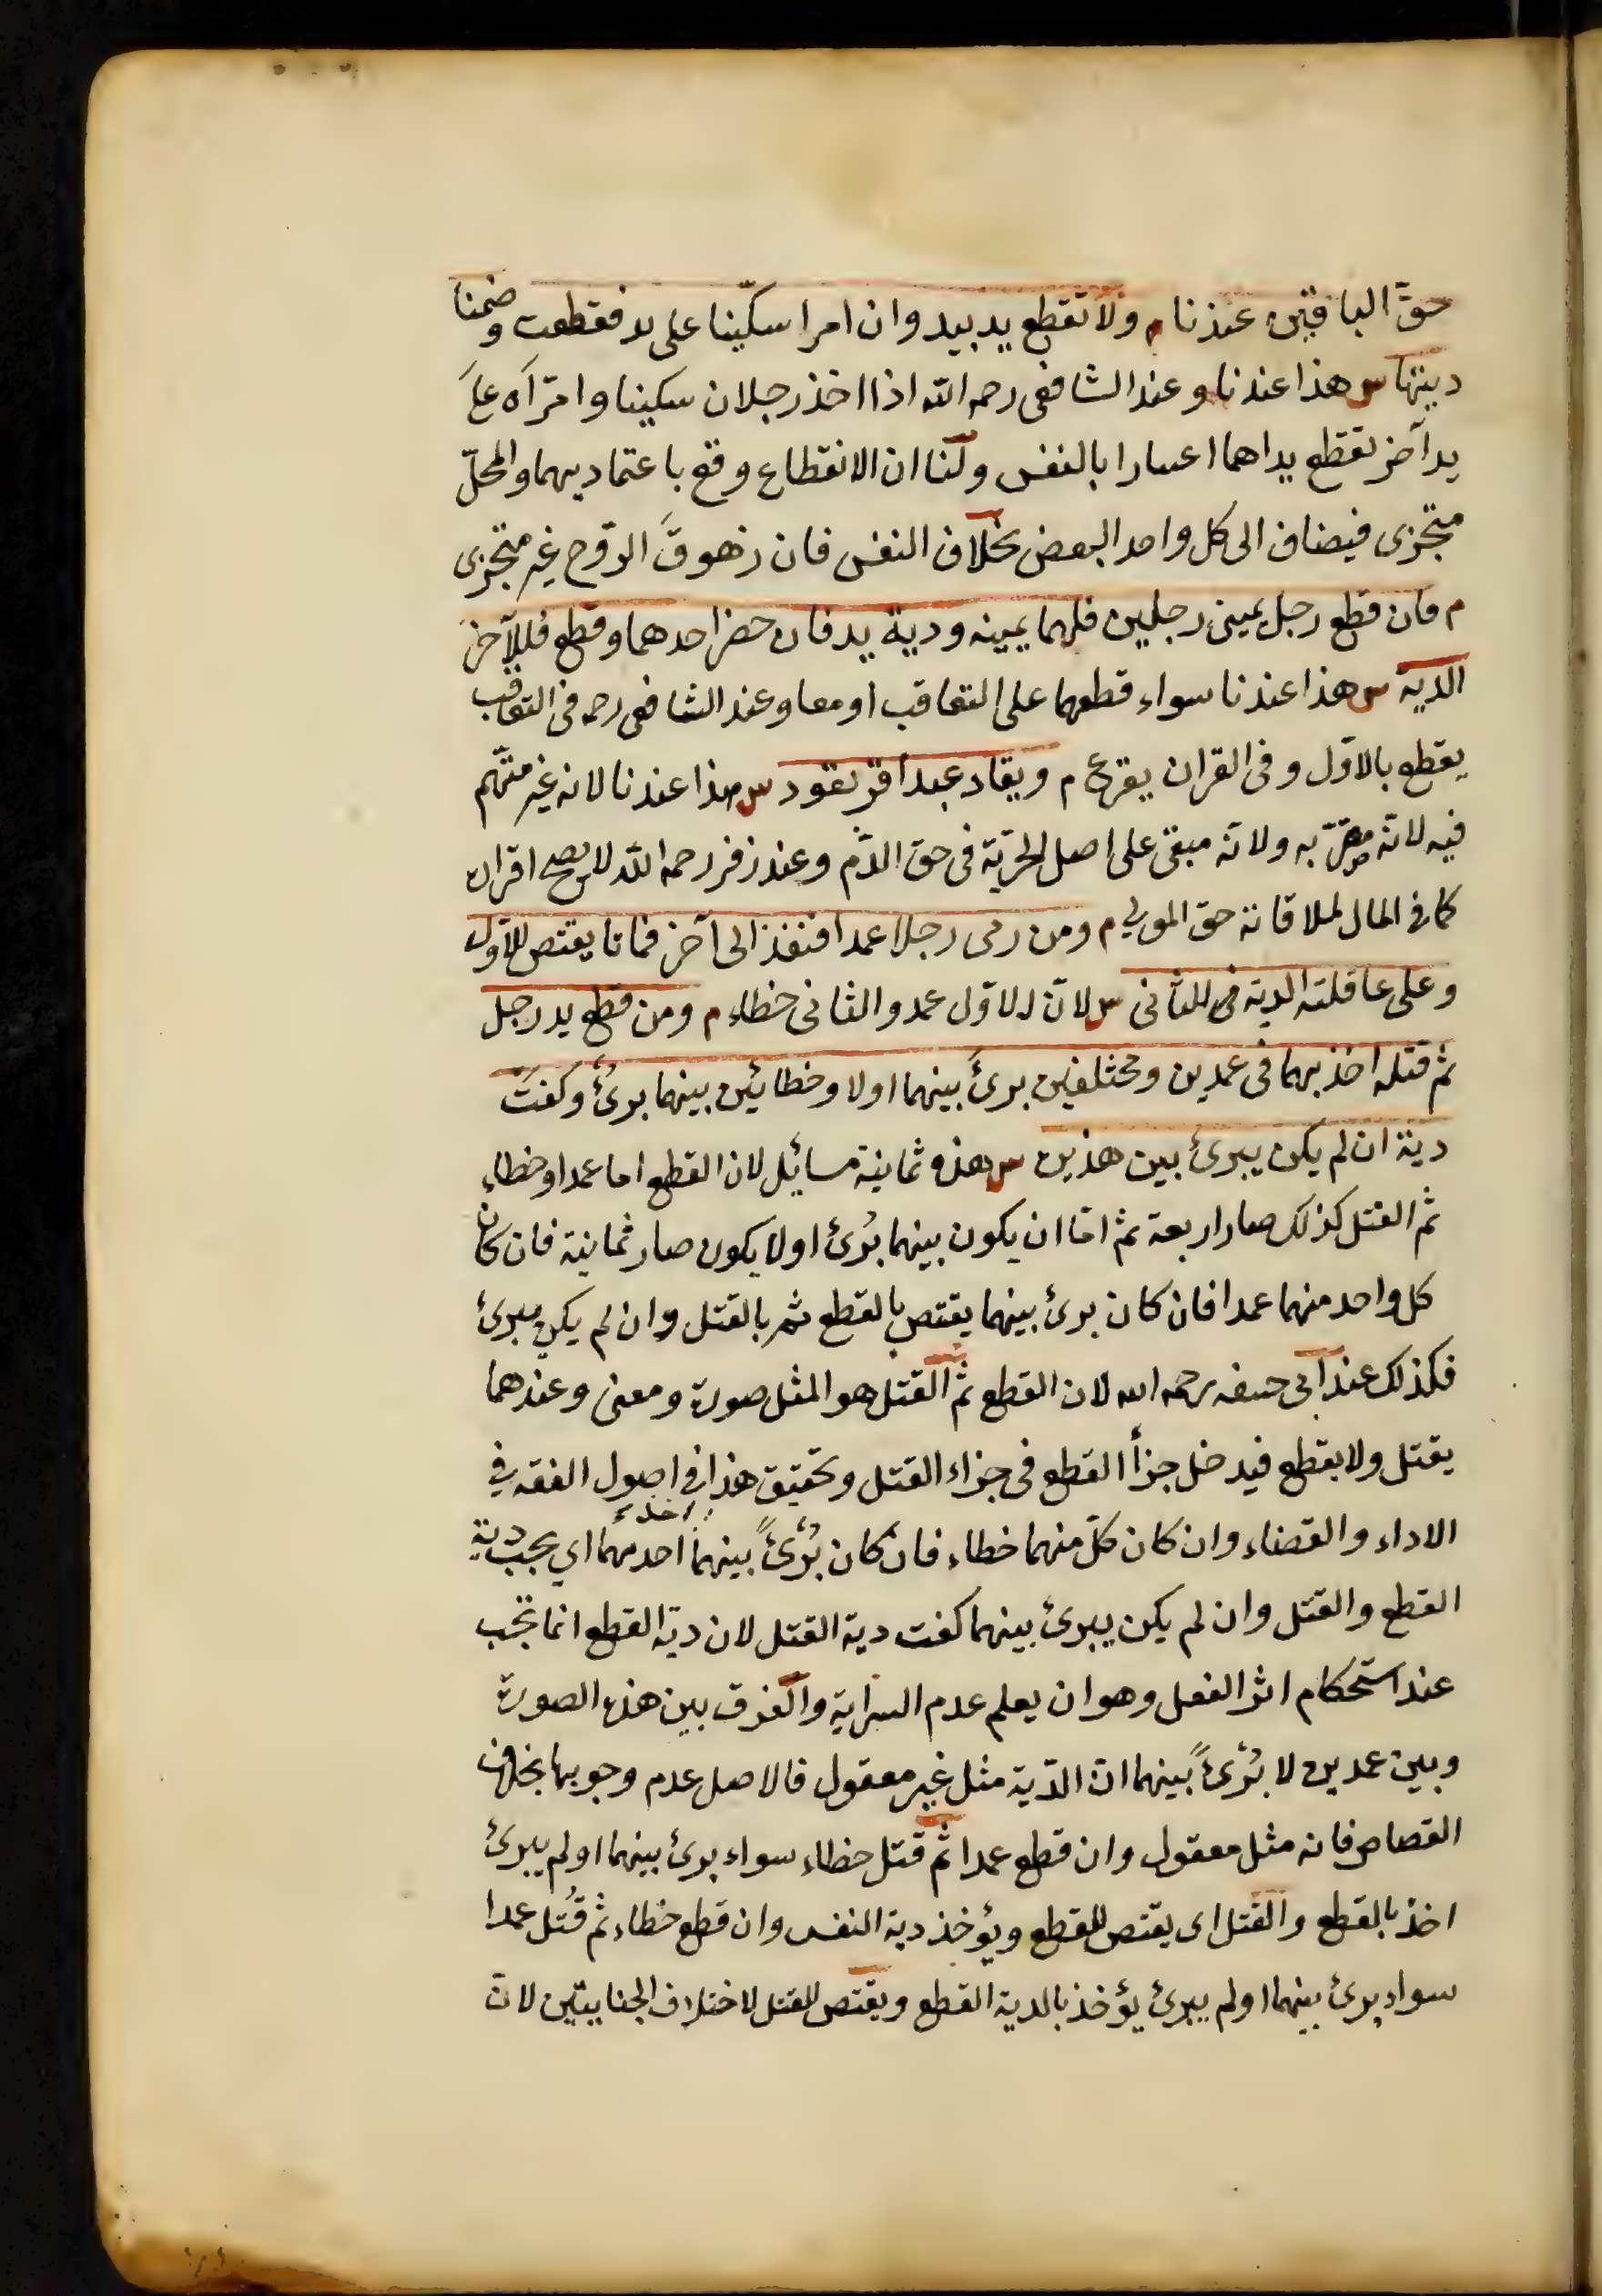 حقّ الباقين عندنا م ولا تقطع يد بيد وان امرا سكّينا على يد فقطعت وضمنا
ديتها س هذا عندنا وعند الشافعى رحمه الله اذا اخذ رجلان سكينا وامرّاه على
يد آخر تقطع يداهما اعتبارا بالنفس ولنا ان الانقطاع وقع باعتماديهما والمحلّ
متجزى فيضاف الى كل واحد البعض بخلاف النفس فان زهوق الروح غير متجزى
م فان قطع رجل يمينى رجلين فلهما يمينه ودية يد فان حضر احدهما وقطع فللآخر
الدية س هذا عندنا سواء قطعهما على التعاقب او معا وعند الشافعى رحمه فى التعاقب
يقطع بالاوّل وفى القران يقرع م ويقاد عبد اقرّ بقود س هذا عندنا لانه غير متهم
فيه لانّه مضرّ به ولانّه مبقى على اصل الحريّة فى حق الدّم وعند زفر رحمه الله لا يصح اقراره
كما فى المال لملاقاته حق المولى م ومن رمى رجلا عمدا فنفذ الى آخر فماتا يقتص للاوّل
وعلى عاقلته الدية فى للثانى س لانّ الاوّل عمد والثانى خطاء م ومن قطع يد رجل
ثم قتله اخذ بهما فى عمدين ومختلفين برئ بينهما اولا وخطايئين بينهما برئ وكفت
دية ان لم يكن يبرئ بين هذين س هذه ثمانية مسائل لان القطع اما عمدا وخطاء
ثم القتل كذلك صار اربعة ثم امّا ان يكون بينهما بُرئ او لا يكون صار ثمانية فان كان
كل واحد منهما عمدا فان كان برئ بينهما يقتص بالقطع ثم بالقتل وان لم يكن يبرئ
فكذلك عند ابى حنيفه رحمه الله لان القطع ثم القتل هو المثل صورة ومعنى وعندهما
يقتل ولا يقطع فيدخل جزأ القطع فى جزاء القتل وتحقيق هذا فى اصول الفقه فى
الاداء والقضاء وان كان كلّ منهما خطاء فان كان بُرئ بينهما اخذ بهما اي يجب دية
القطع والقتل وان لم يكن يبرئ بينهما كفت دية القتل لان دية القطع انما تجب
عند استحكام اثر الفعل وهو ان يعلم عدم السراية والفرق بين هذه الصورة
وبين عمدين لا بُرئ بينهما ان الدّية مثل غير معقول فالاصل عدم وجوبها بخلاف
القصاص فانه مثل معقول وان قطع عمدا ثم قتل خطاء سواء برئ بينهما او لم يبرئ
اخذ بالقطع والقتل اى يقتص للقطع ويؤخذ دية النفس وان قطع خطاء ثم قُتل عمدا
سواء برئ بينهما او لم يبرئ يؤخذ بالدية القطع ويقتص للقتل لاختلاف الجنايتين لانّ